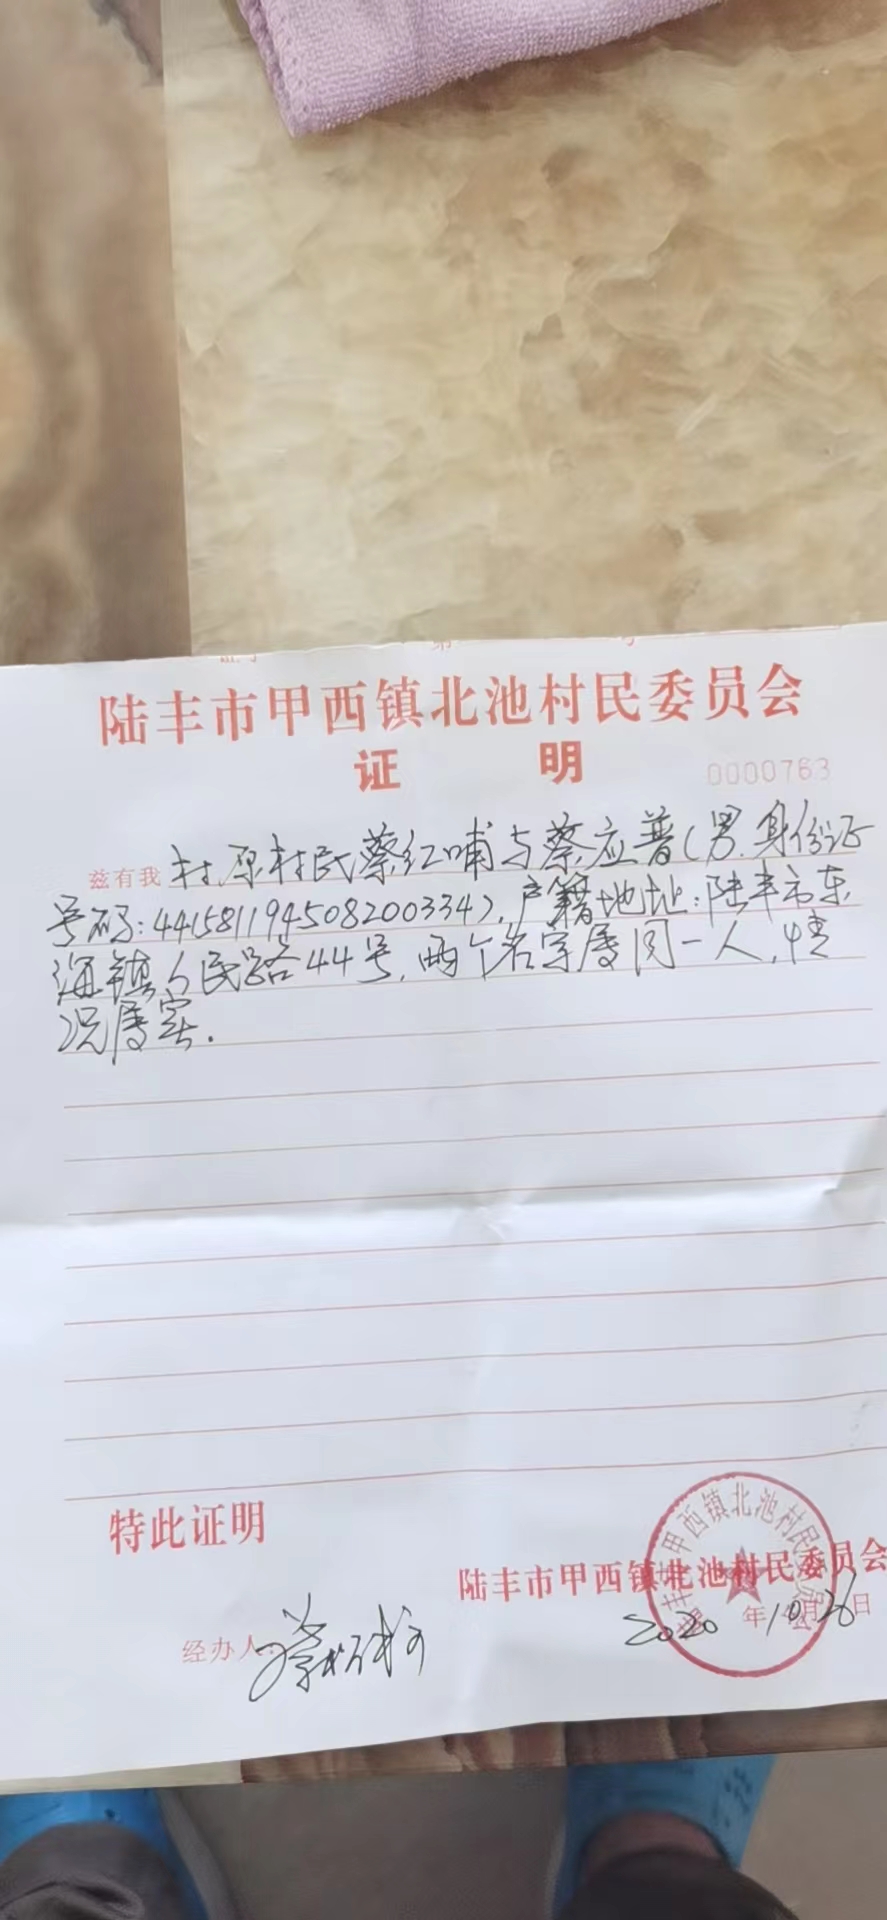 陆丰市甲西镇北池村民委员会
证 明
0000763
兹有我村原村民蔡红哺与蔡应普(男.身份证
号码:441581194508200334),户籍地址:陆丰市东
海镇人民路44号,两个名字属同一人,情
况属实.
特此证明
陆丰市甲西镇北池村民委员会
2020年10月26日
经办人:蔡
陆丰市甲西镇北池村民委员会